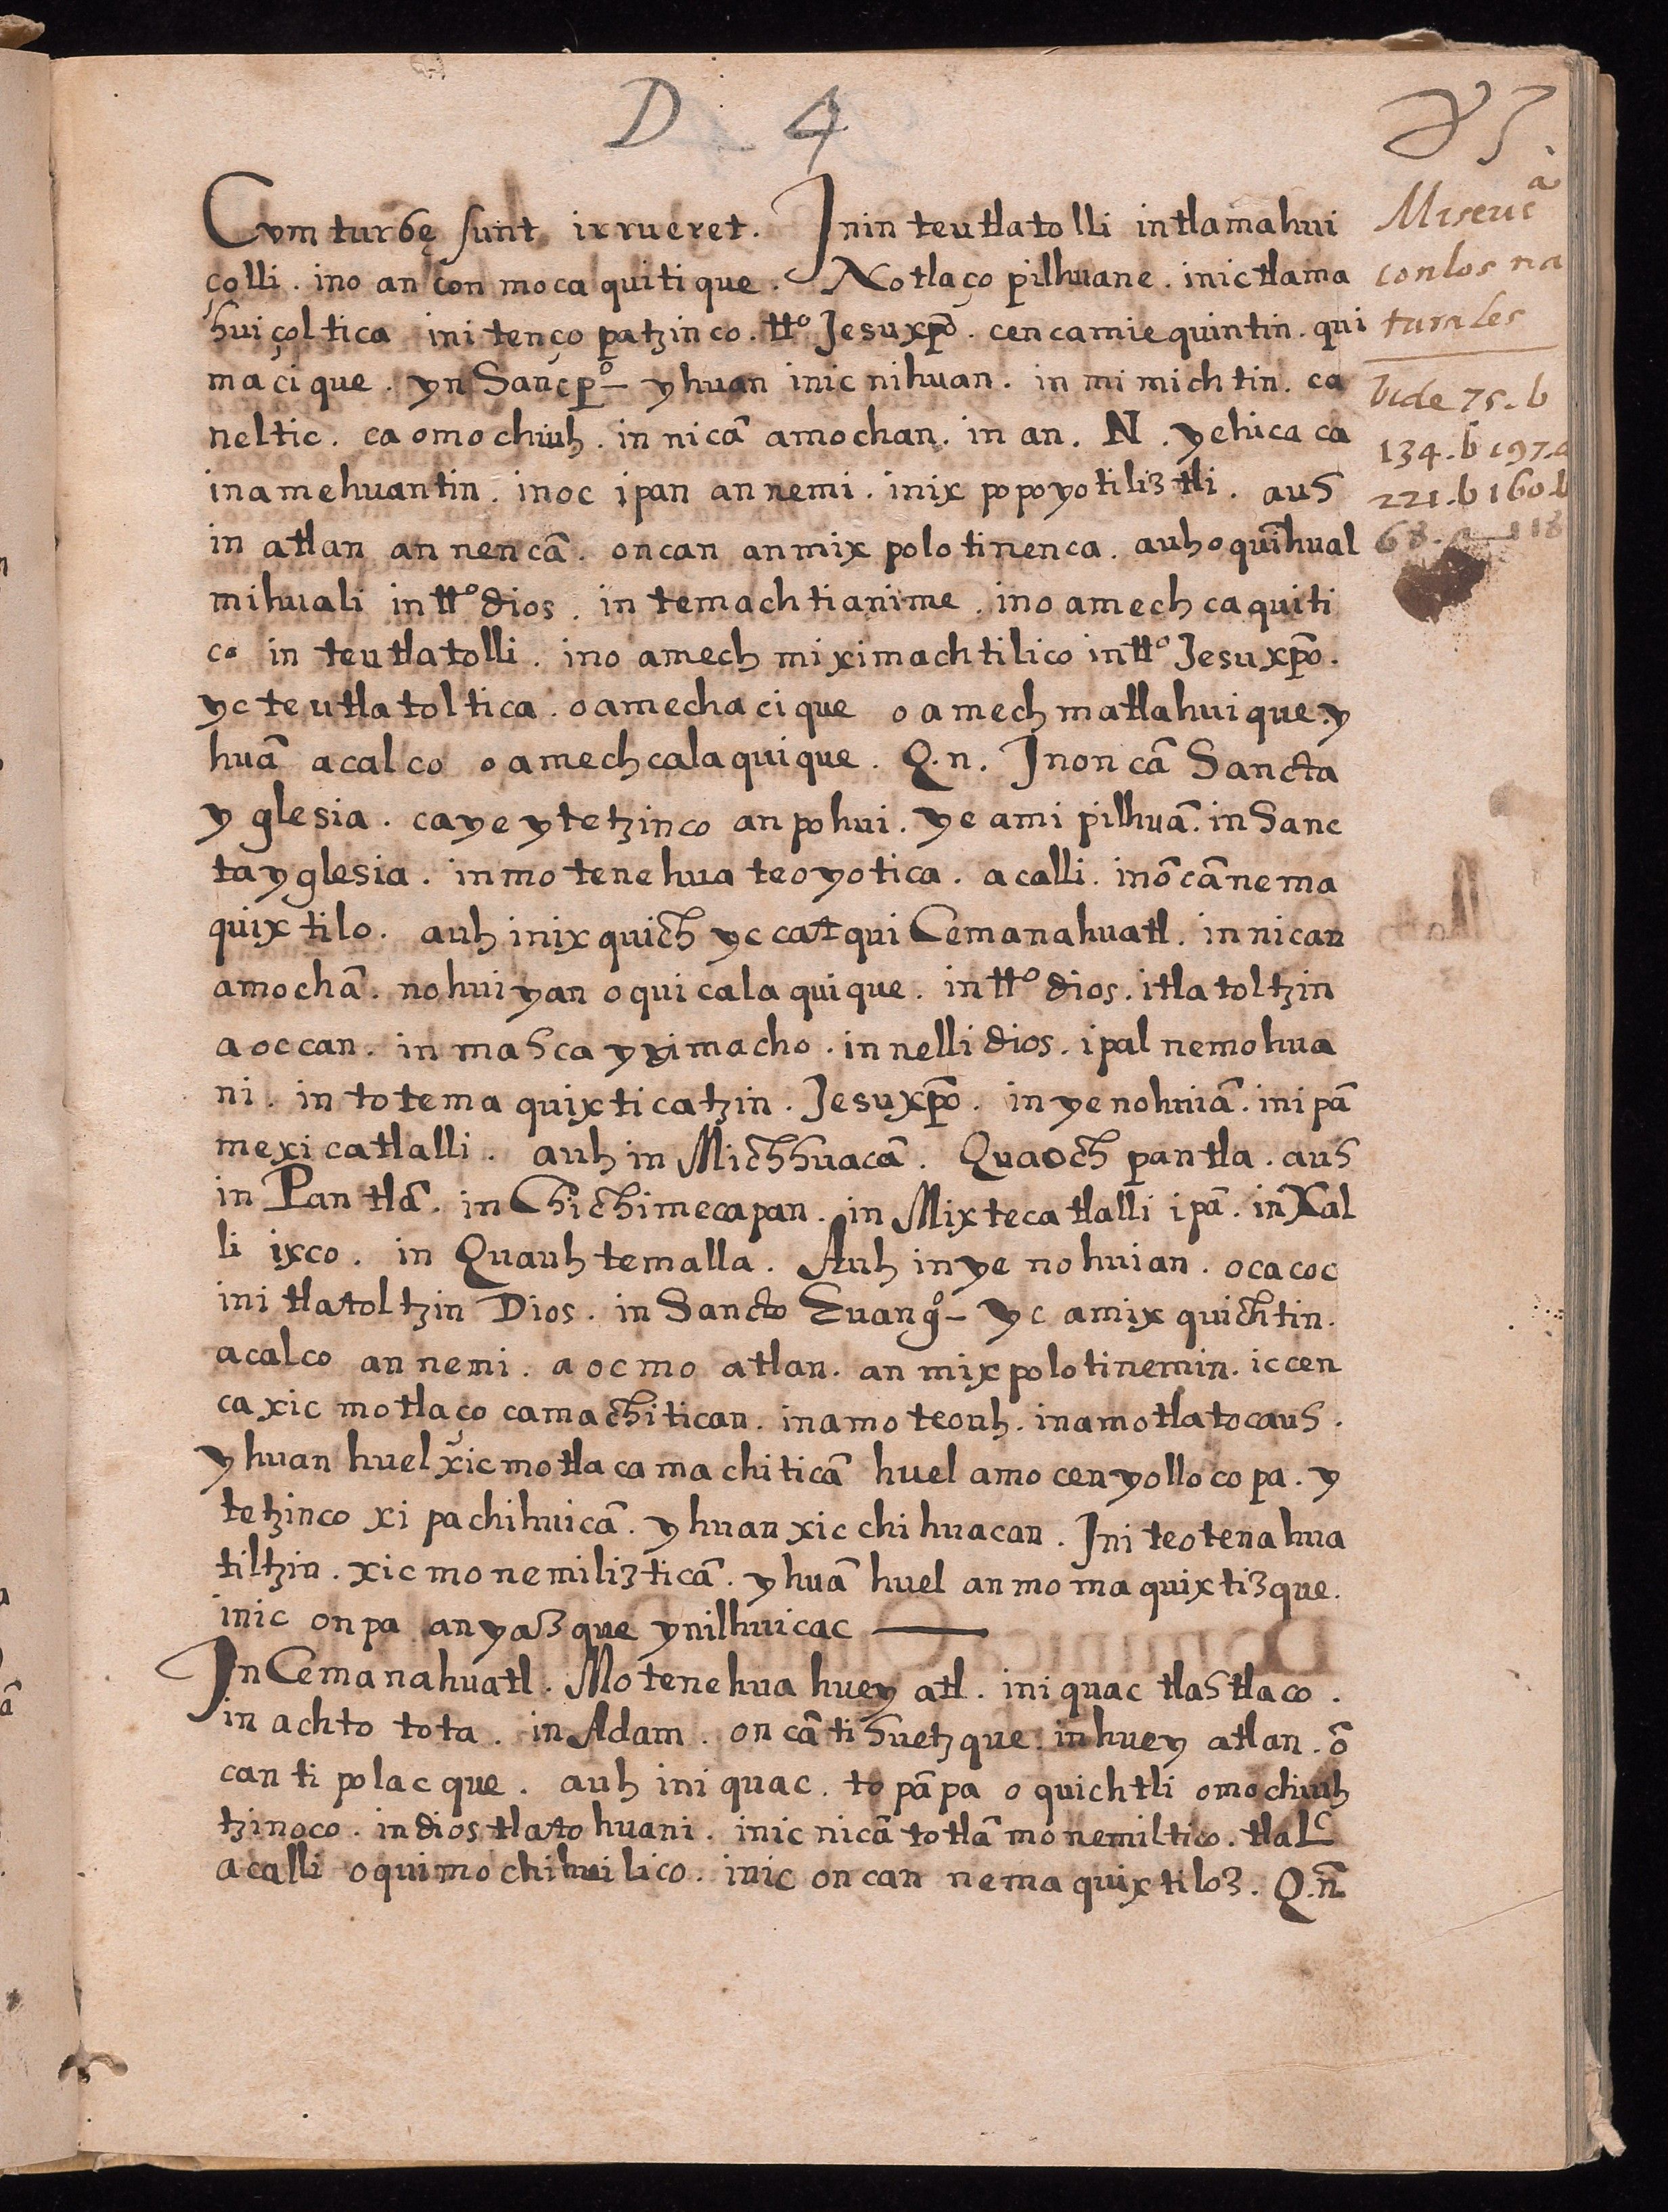 D 4
85.
Cvm turbę sunt irrueret. Inin teutlatolli intlamahui
çolli. ino an con mocaquitique. Notlaço pilhuane. inictlama
huiçoltica initenço patzinco. tt⁰ Jesu xp̄o. cencamiequintin. qui
macique. yn Sanc p⁰- yhuan inicnihuan. in mimichtin. ca
neltic. ca omochiuh. in nicā amochan. in an. N. yehica ca
inamehuantin. inoc ipan annemi. inix popoyotiliztli. auh
in atlan annencā. oncan anmix polotinenca. auh oquīhual
mihuali intt⁰ dios. in temachtianime. ino amech caquiti
co in teutlatolli. ino amech miximachtilico intt⁰ Jesu xp̄o.
yc teutlatoltica. o amechacique o amech matlahuique. y
huā acalco o amech calaquique. Q.n. Inon cā Sancta
yglesia. caye ytetzinco anpohui. ye amipilhuā. in Sanc
ta yglesia. in motenehua teoyotica. acalli. inōcānema
quixtilo. auh inixquich yc catqui Cemanahuatl. in nican
amochā. nohuiyan oquicalaquique. intt⁰ dios. itlatoltzin
aoccan. in mahca yximacho. in nelli dios. ipalnemohua
ni. in totemaquixticatzin. Jesu xp̄o. in ye nohuiā. inipā
mexicatlalli. auh in Michhuacā. Quaochpantla. auh
in Pantlā. in Chichimecapan. in Mixtecatlalli ipā. in Xal
li ixco. in Quauhtemalla. Auh in ye nohuian. ocacoc
initlatoltzin Dios. in Sancto Euang⁰- yc amixquichtin.
acalco annemi. aocmo atlan. an mixpolotinemin. ic cen
ca xic motlaçocamachitican. inamoteouh. inamotlatocauh.
yhuan huel xicmotlacamachiticā huel amocenyollocopa. y
tetzinco xi pachihuicā. yhuan xicchihuacan. Ini teotenahua
tiltzin. xicmonemiliztica. yhuā huel anmomaquixtizque.
inic onpa anyazque ynilhuicac
In Cemanahuatl. Motenehua huey atl. iniquac tlahtlaco.
in achto tota. in Adam. on cā tihuetzque. in huey atlan. ō
can ti polacque. auh iniquac. topāpa oquichtli omochiuh
tzinoco. in dios tlatohuani. inic nicā totlā monemiltico. tlalc
acalli oquimochihuilico. inic oncan nemaquixtiloz. Q.n̄
Miseric a
con los na
turales
Vide 75. b
134. b 197. a
221. b 160. b
68. 118